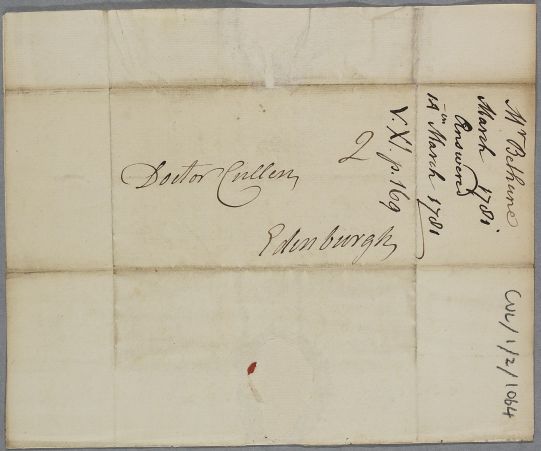 Doctor Cullen,
2
Edinburgh
Mr Bethune
March 1781.
Answered
in
14 March 1781
V. XI. p. 169
CUL/1/2/1064